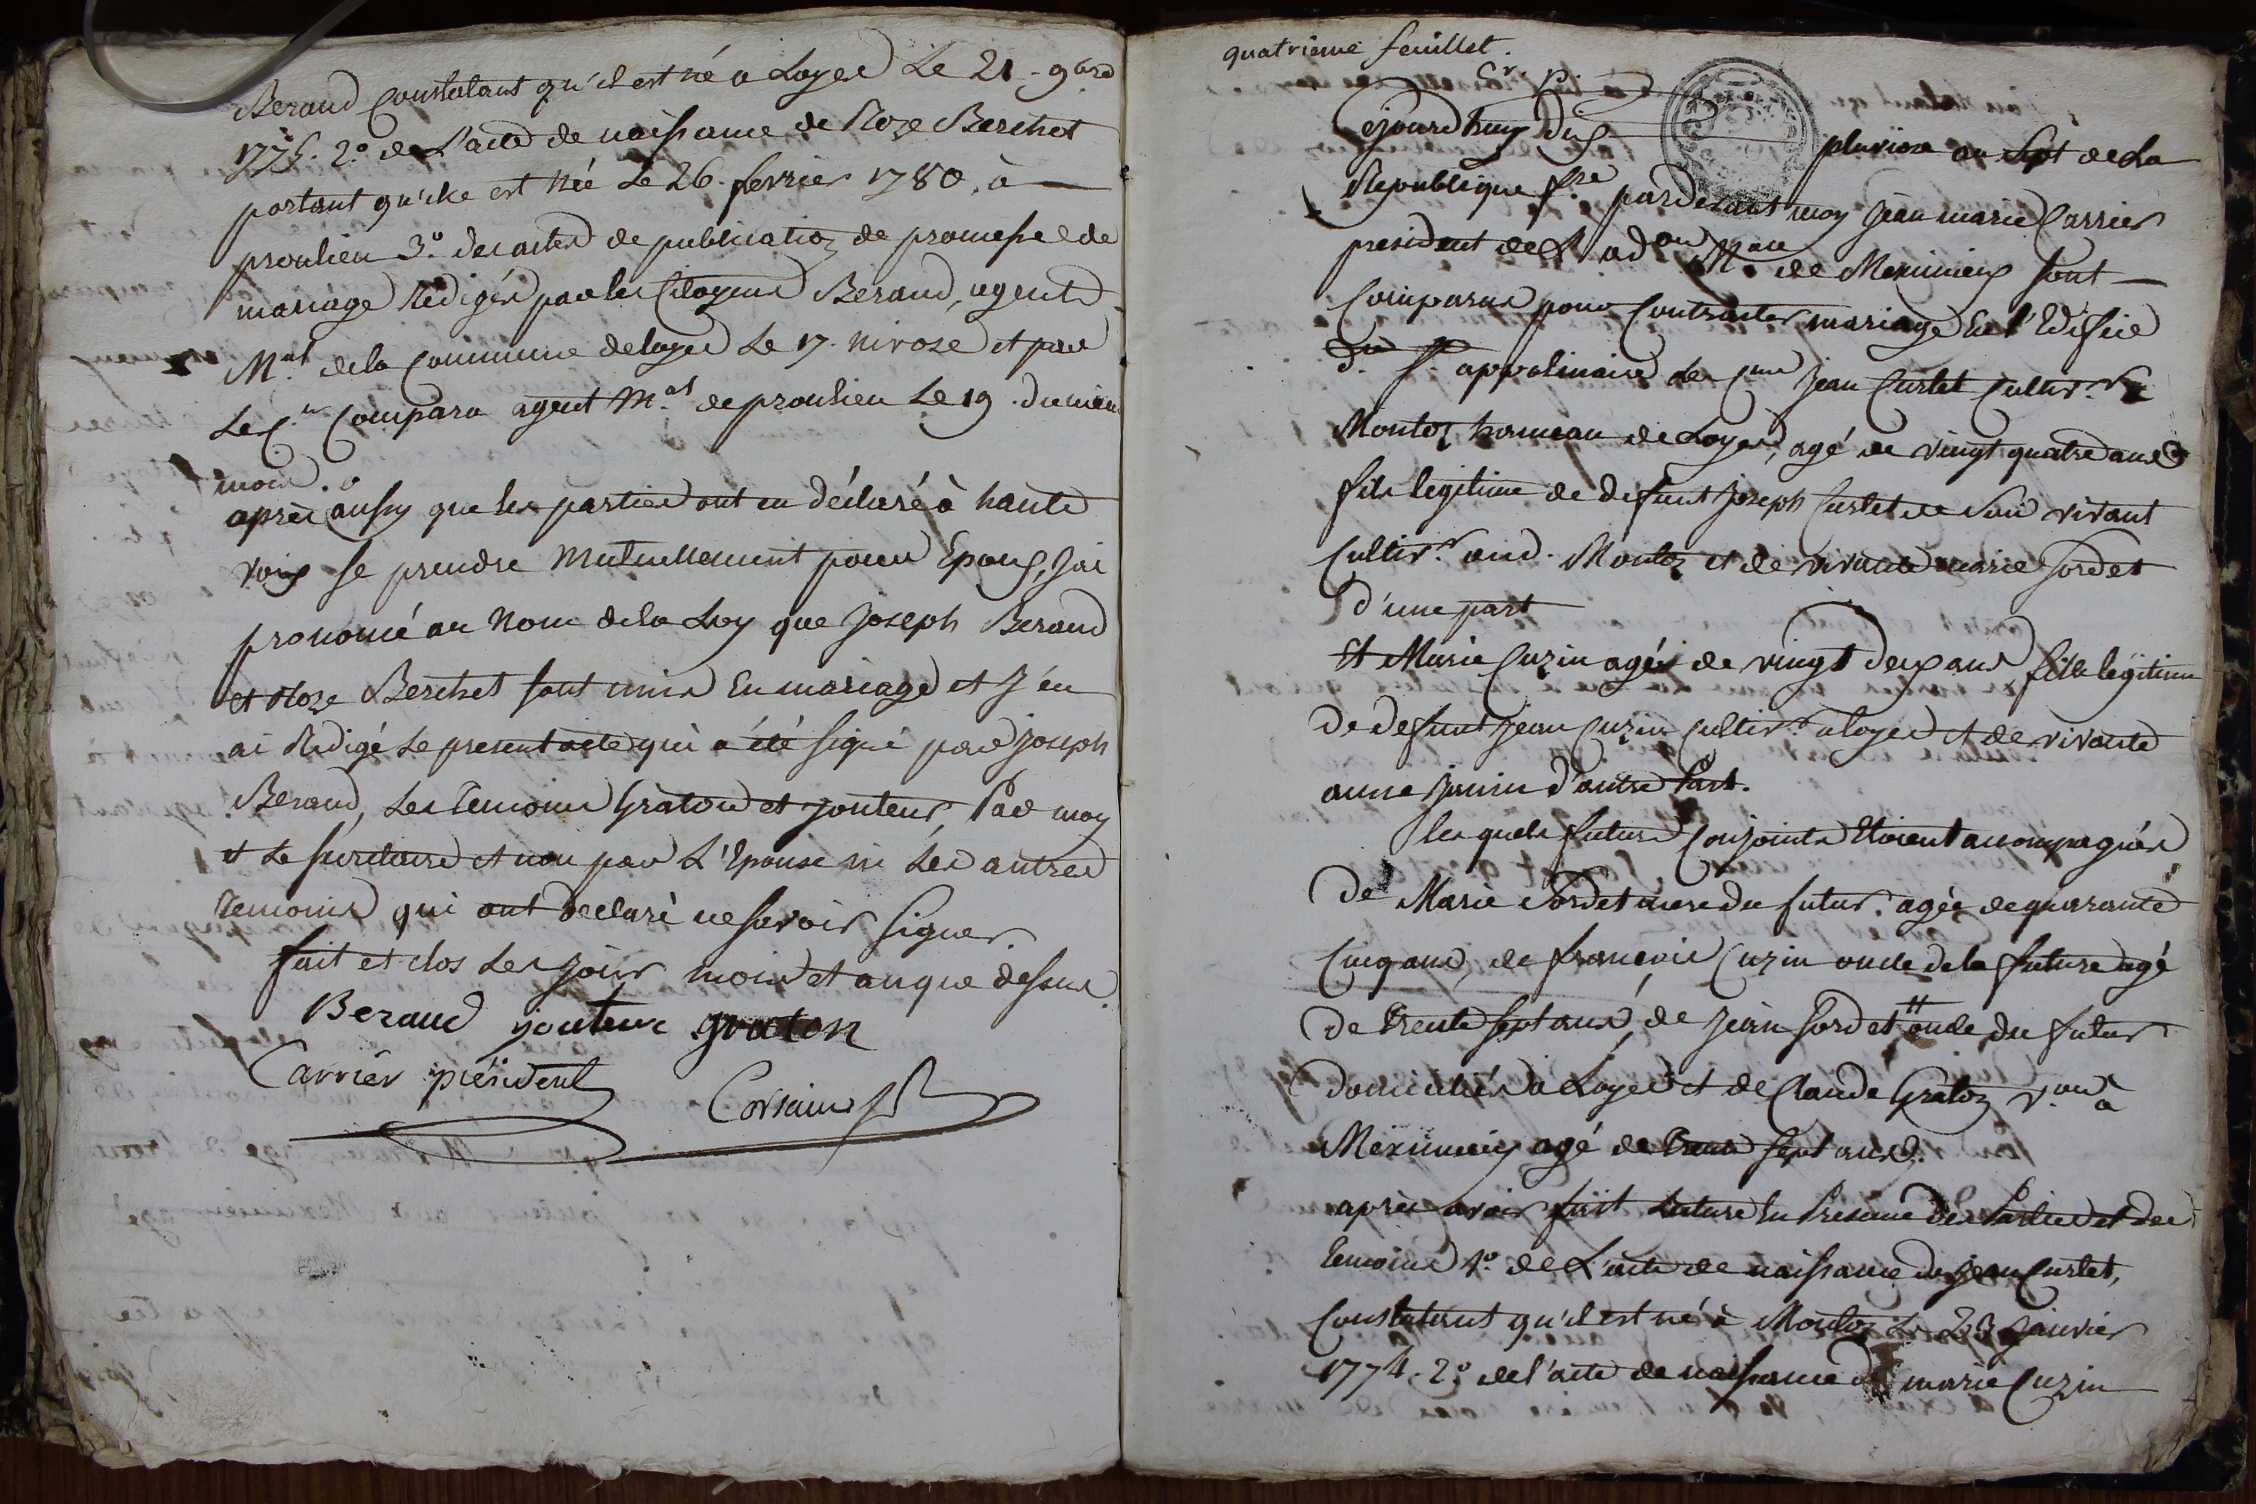 Beraud Constatant qu'il est né a Loyes Le 21 9bre
1775. 2.° de L'acte de naissance de Roze Berchet
portant qu'elle est née Le 26. fevrier 1780, à
proulieu 3.° des actes de publication de promesse de
mariage Rédigés par les Citoyens Beraud, agent
M.al dela Commune deloyes Le 17. nivose et par
Le C.en Compara agent M.al de proulieu Le 19. du meme
mois.
après aussy que les parties ont eu déclaré à haute
voix se prendre Mutuellement pour Epoux, J'ai
prononcé au Nom dela Loy que Joseph Beraud
et Roze Berchet sont unis En mariage et J'en
ai Rédigé Le present acte qui a été signé par Joseph
Beraud, Les Temoins Graton et Jouteur, Par moy
et Le secretaire et non par L'Epouse ni Les autres
Temoins qui ont declaré ne savoir signer.
fait et clos Les Jour mois et an que dessus.
Beraud jouteur graton
Carrier président
quatrieme feuillet.
Cejourd'huy Dix pluviose an Sept de La
Republique f.se pardevant moy Jean marie Carrier
president de L'ad.on M.ale de Meximieux sont
Comparus pour Contracter mariage En l'Edifice
d.t S.t appolinaire Le C.en Jean Curtet Cultiv.r
Montoz hameau de Loyes, agé de vingt quatre ans
fils legitime de defunt Joseph Curtet de son vivant
Cultiv.r aud. Montoz et de vivante marie Sordet
d'une part
Et Marie Cuzin agée de vingt deux ans fille legitime
De defunt Jean Cuzin Cultiv.r a loyes et de vivante
anne Janin d'autre Part.
Les quels futurs Conjoints Etoient accompagnés
De Marie Sordet mere du futur. agée de quarante
Cinq ans, de françois Cuzin oncle de la future agé
De trente sept ans, de Jean Sordet oncle du futur
Domiciliés a Loyes et de Claude Graton
Meximieux agé de trente sept ans.
après avoir fait Lecture En Presence Des Parties et des
temoins 1.° de L'acte de naissance de Jean Curtet,
Constatant qu'il est né à Montoz Le 23 Janvier
1774. 2.° de l'acte de naissance de marie Cuzin